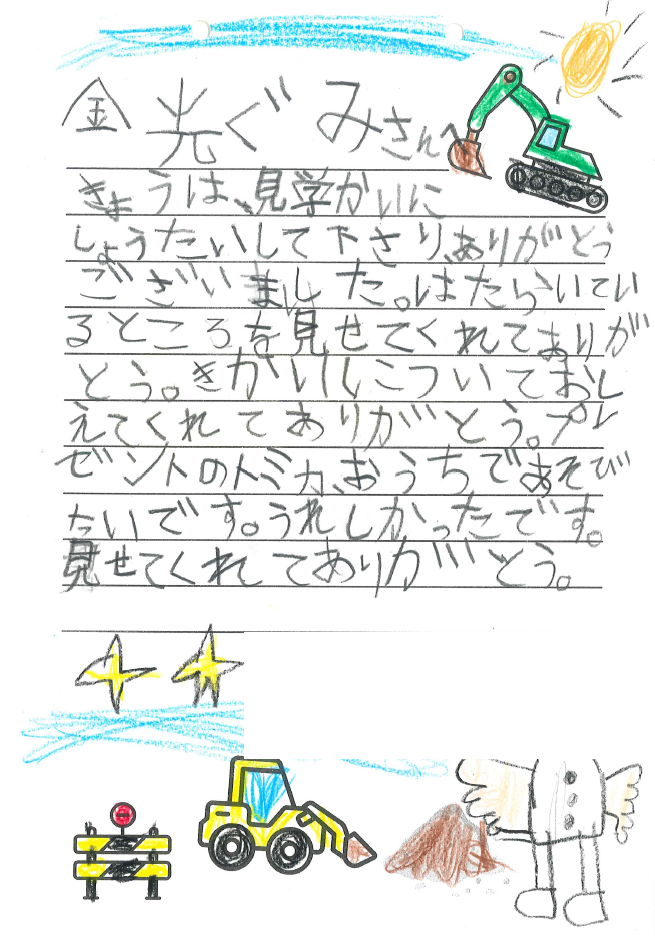 金光ぐみさんへ
きょうは、見学かいに
しょうたいして下さり、ありがとう
ございました。はたらいてい
るところを見せてくれてありが
とう。きかいについておし
えてくれてありがとう。プレ
ゼントのトミカ、おうちであそび
たいです。うれしかったです。
見せてくれてありがとう。